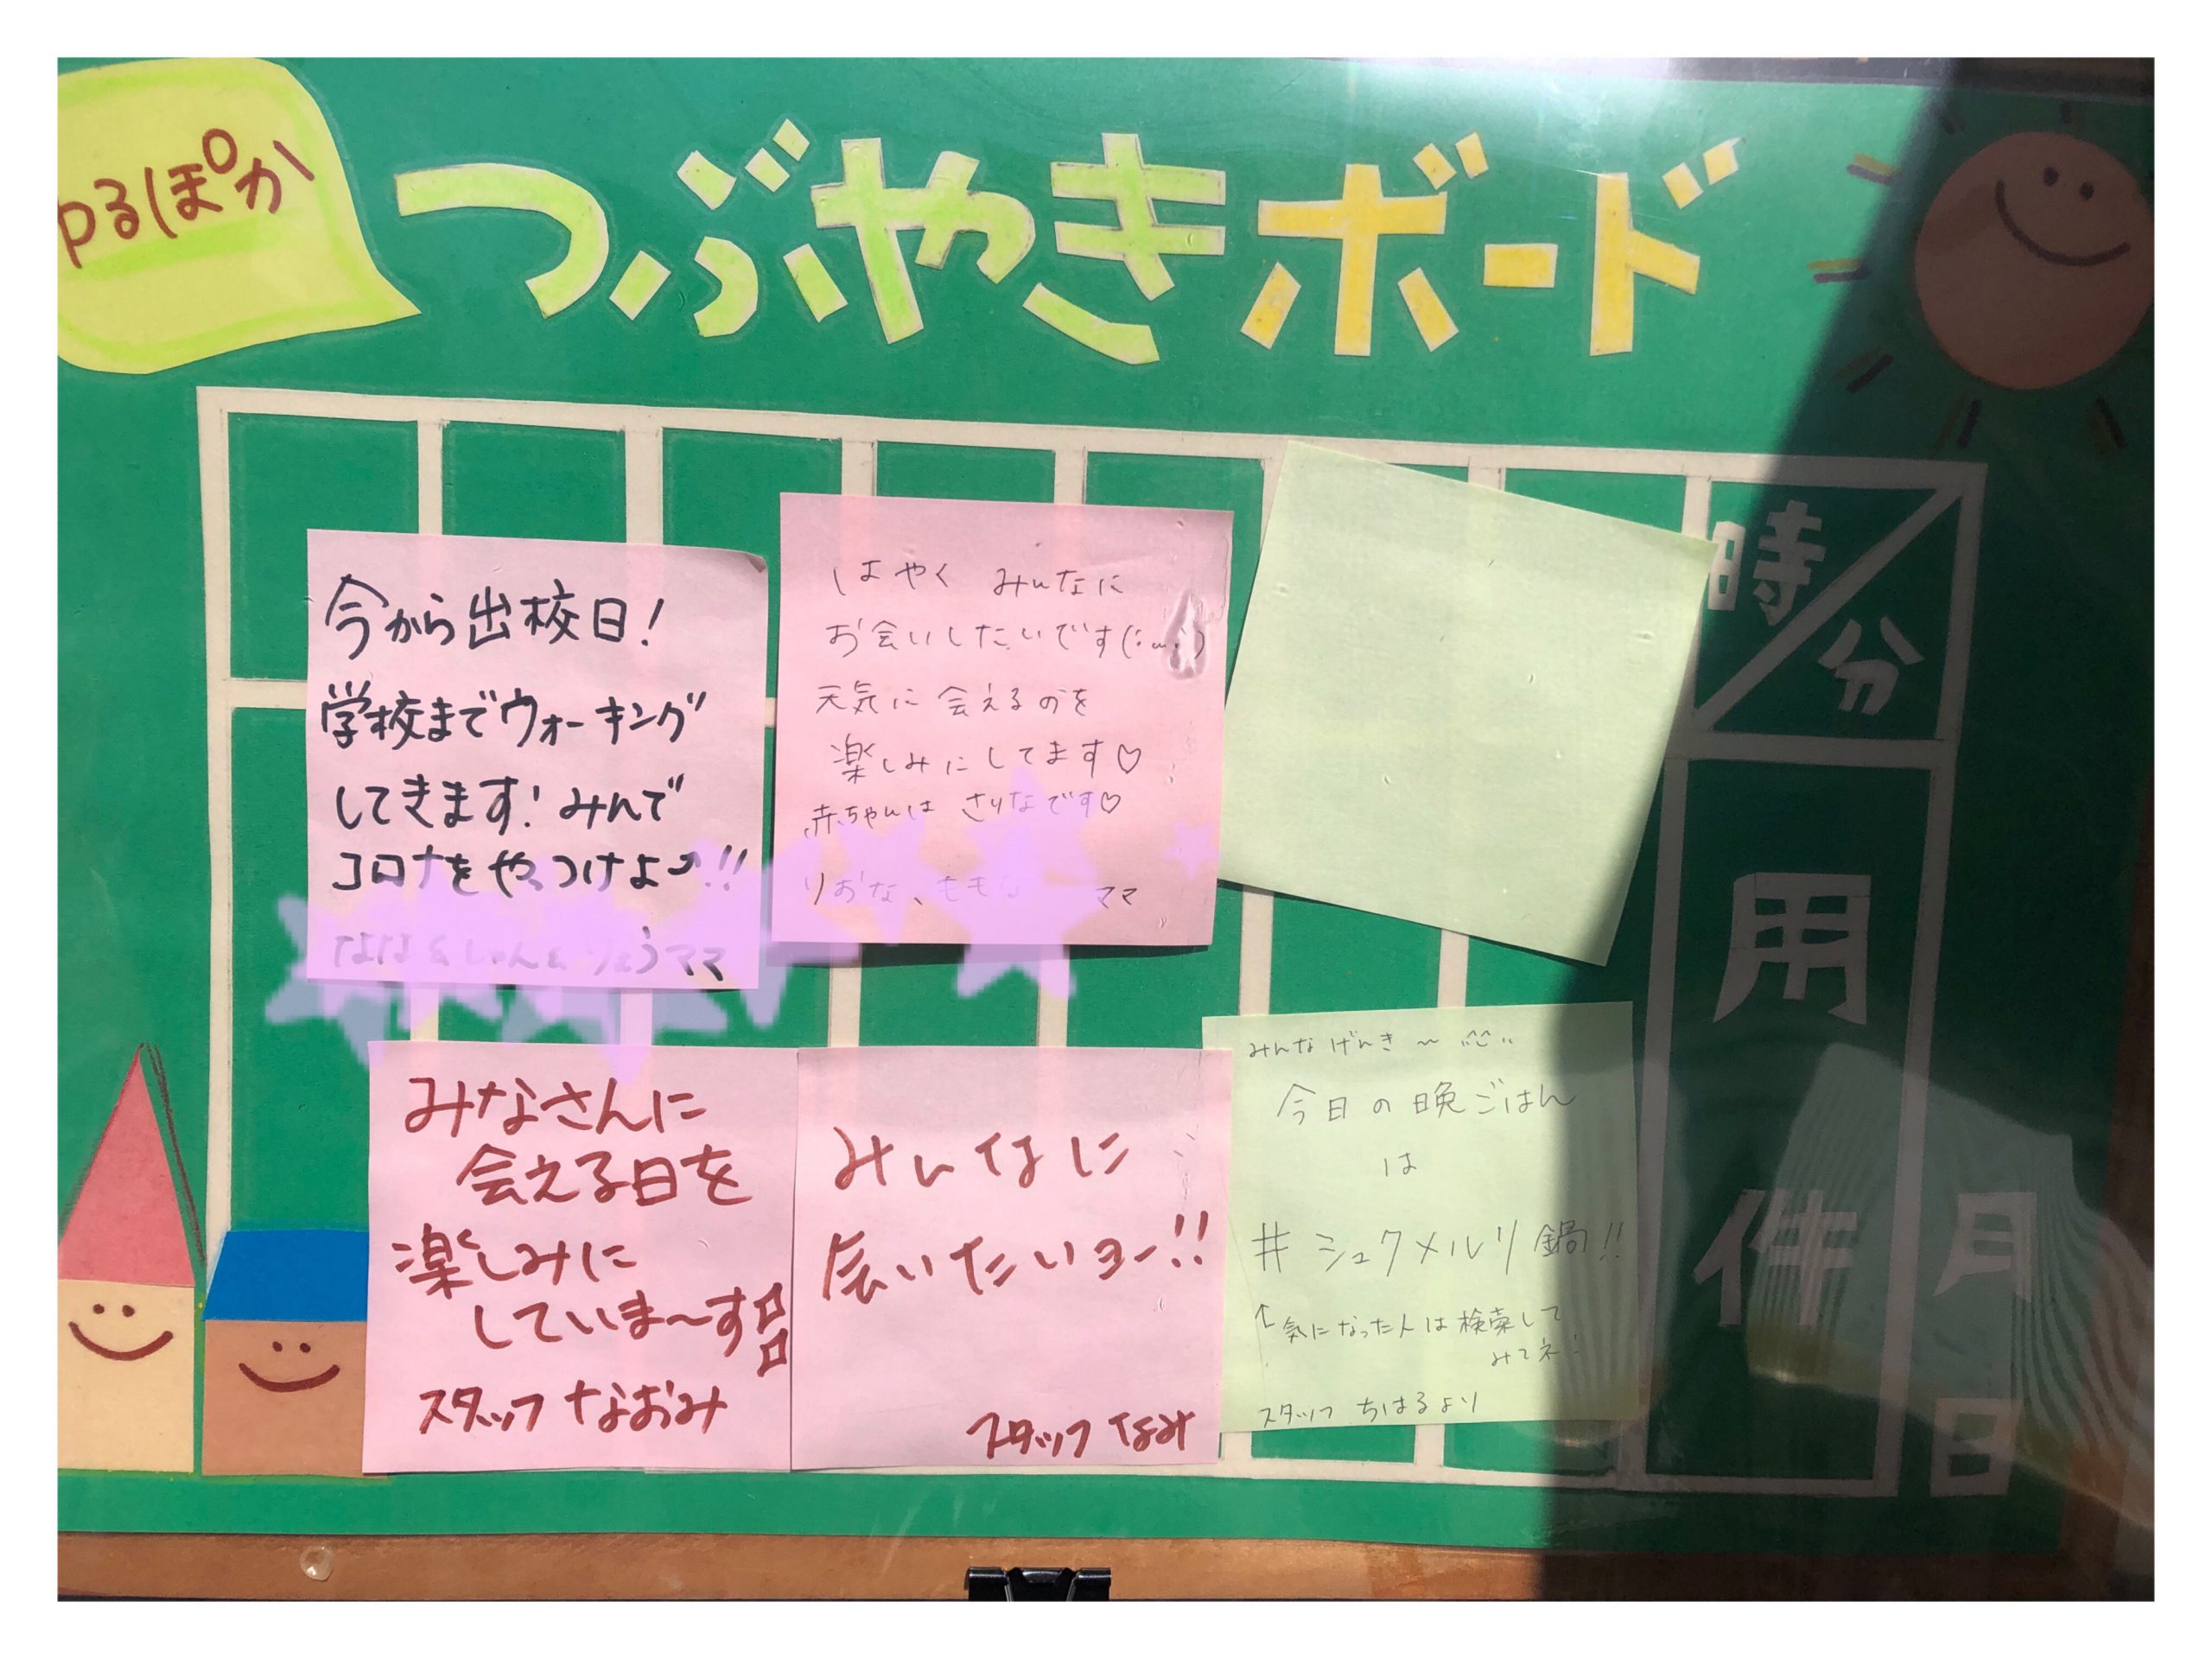 ゆるぽか
つぶやきボード
今から出校日!
学校までウォーキング
してきます!みんで
コロナをやっつけよー!!
ママ
はやく みんなに
お会いしたいです
天気に会えるのを
楽しみにしてます♡
赤ちゃんは さりなです♡
りおな、ももな ママ
時
分
用
件
月
日
みなさんに
会える日を
楽しみに
していま〜す
スタッフ なおみ
みんなに
会いたいヨー!!
スタッフ なみ
みんな げんき〜
今日の晩ごはん
は
#シュクメルリ鍋!!
↑気になった人は検索して
みてネ!
スタッフ ちはるより